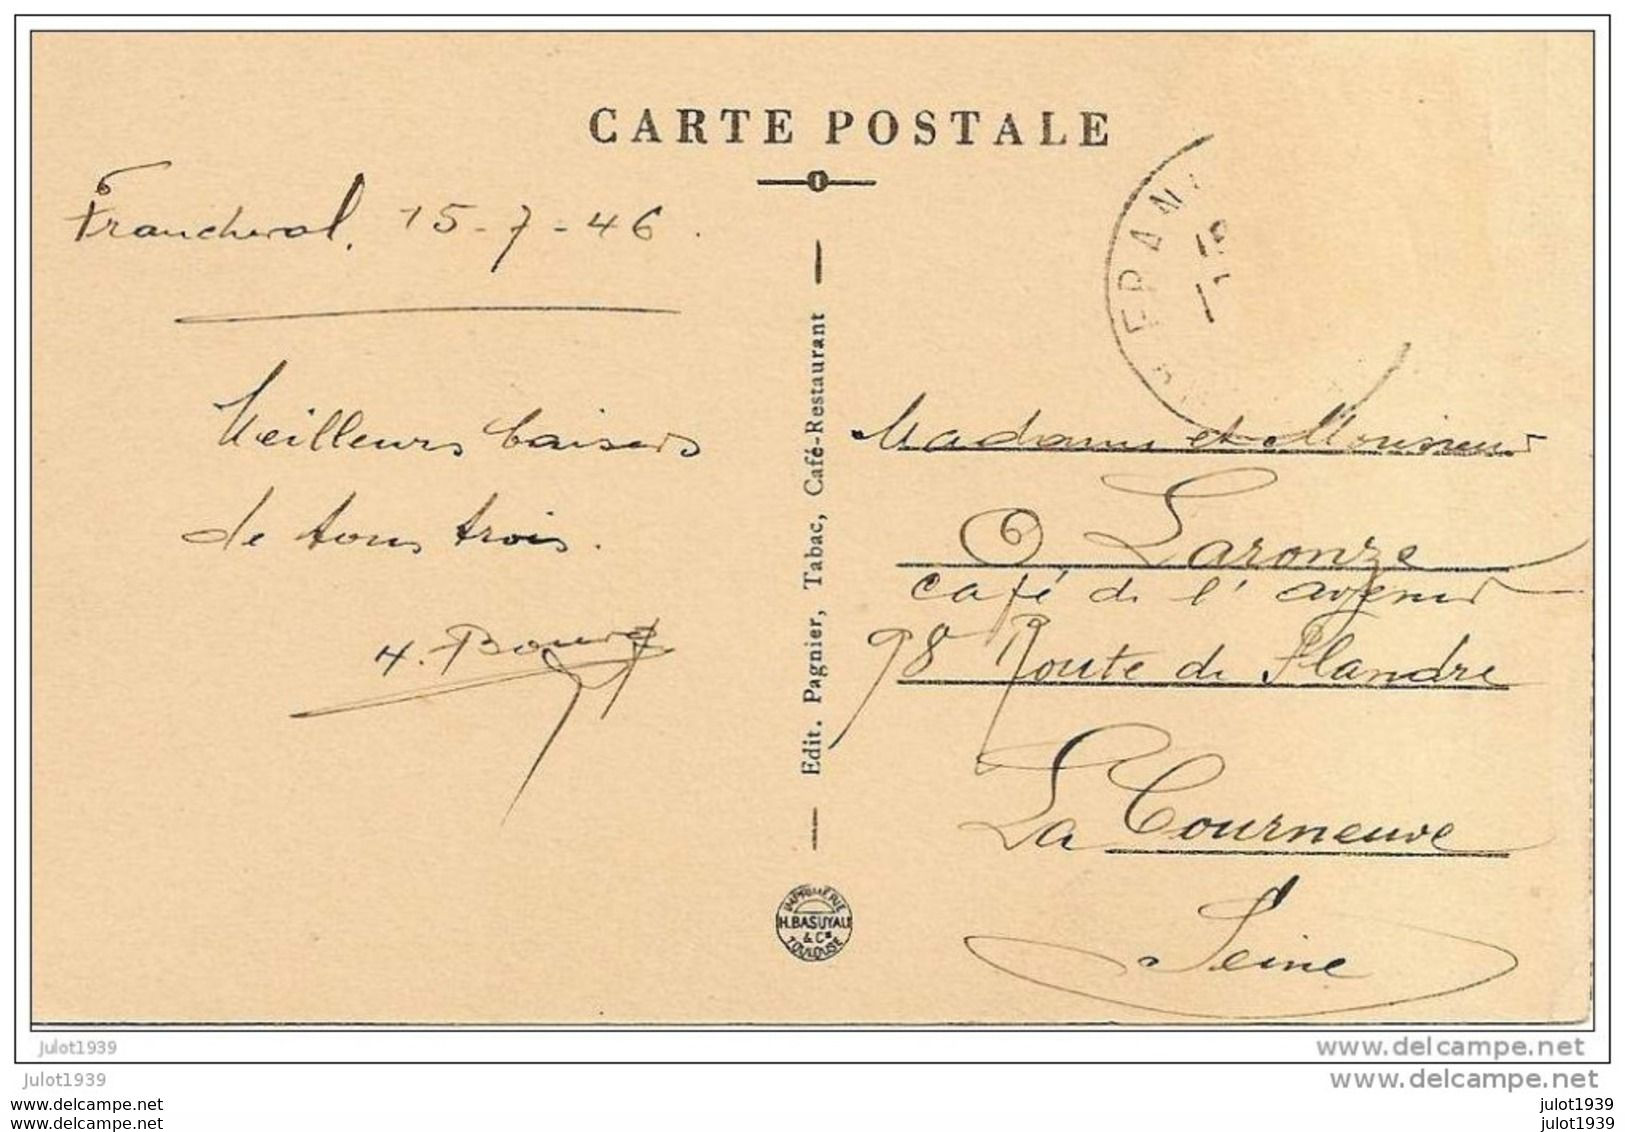 CARTE POSTALE
Francheval, 15-7-46.
Meilleurs baisers
de tous trois.
H. Bourg
Edit. Pagnier, Tabac, Café-Restaurant
IMPRIMERIE
H. BASUYAU
& Cie
TOULOUSE
FRAN
15
Madame et Monsieur
O Laronze
café de l'avenir
98 Route de Flandre
La Courneuve
Seine
julot1939
www.delcampe.net
julot1939
www.delcampe.net
www.delcampe.net
julot1939
www.delcampe.net
julot1939